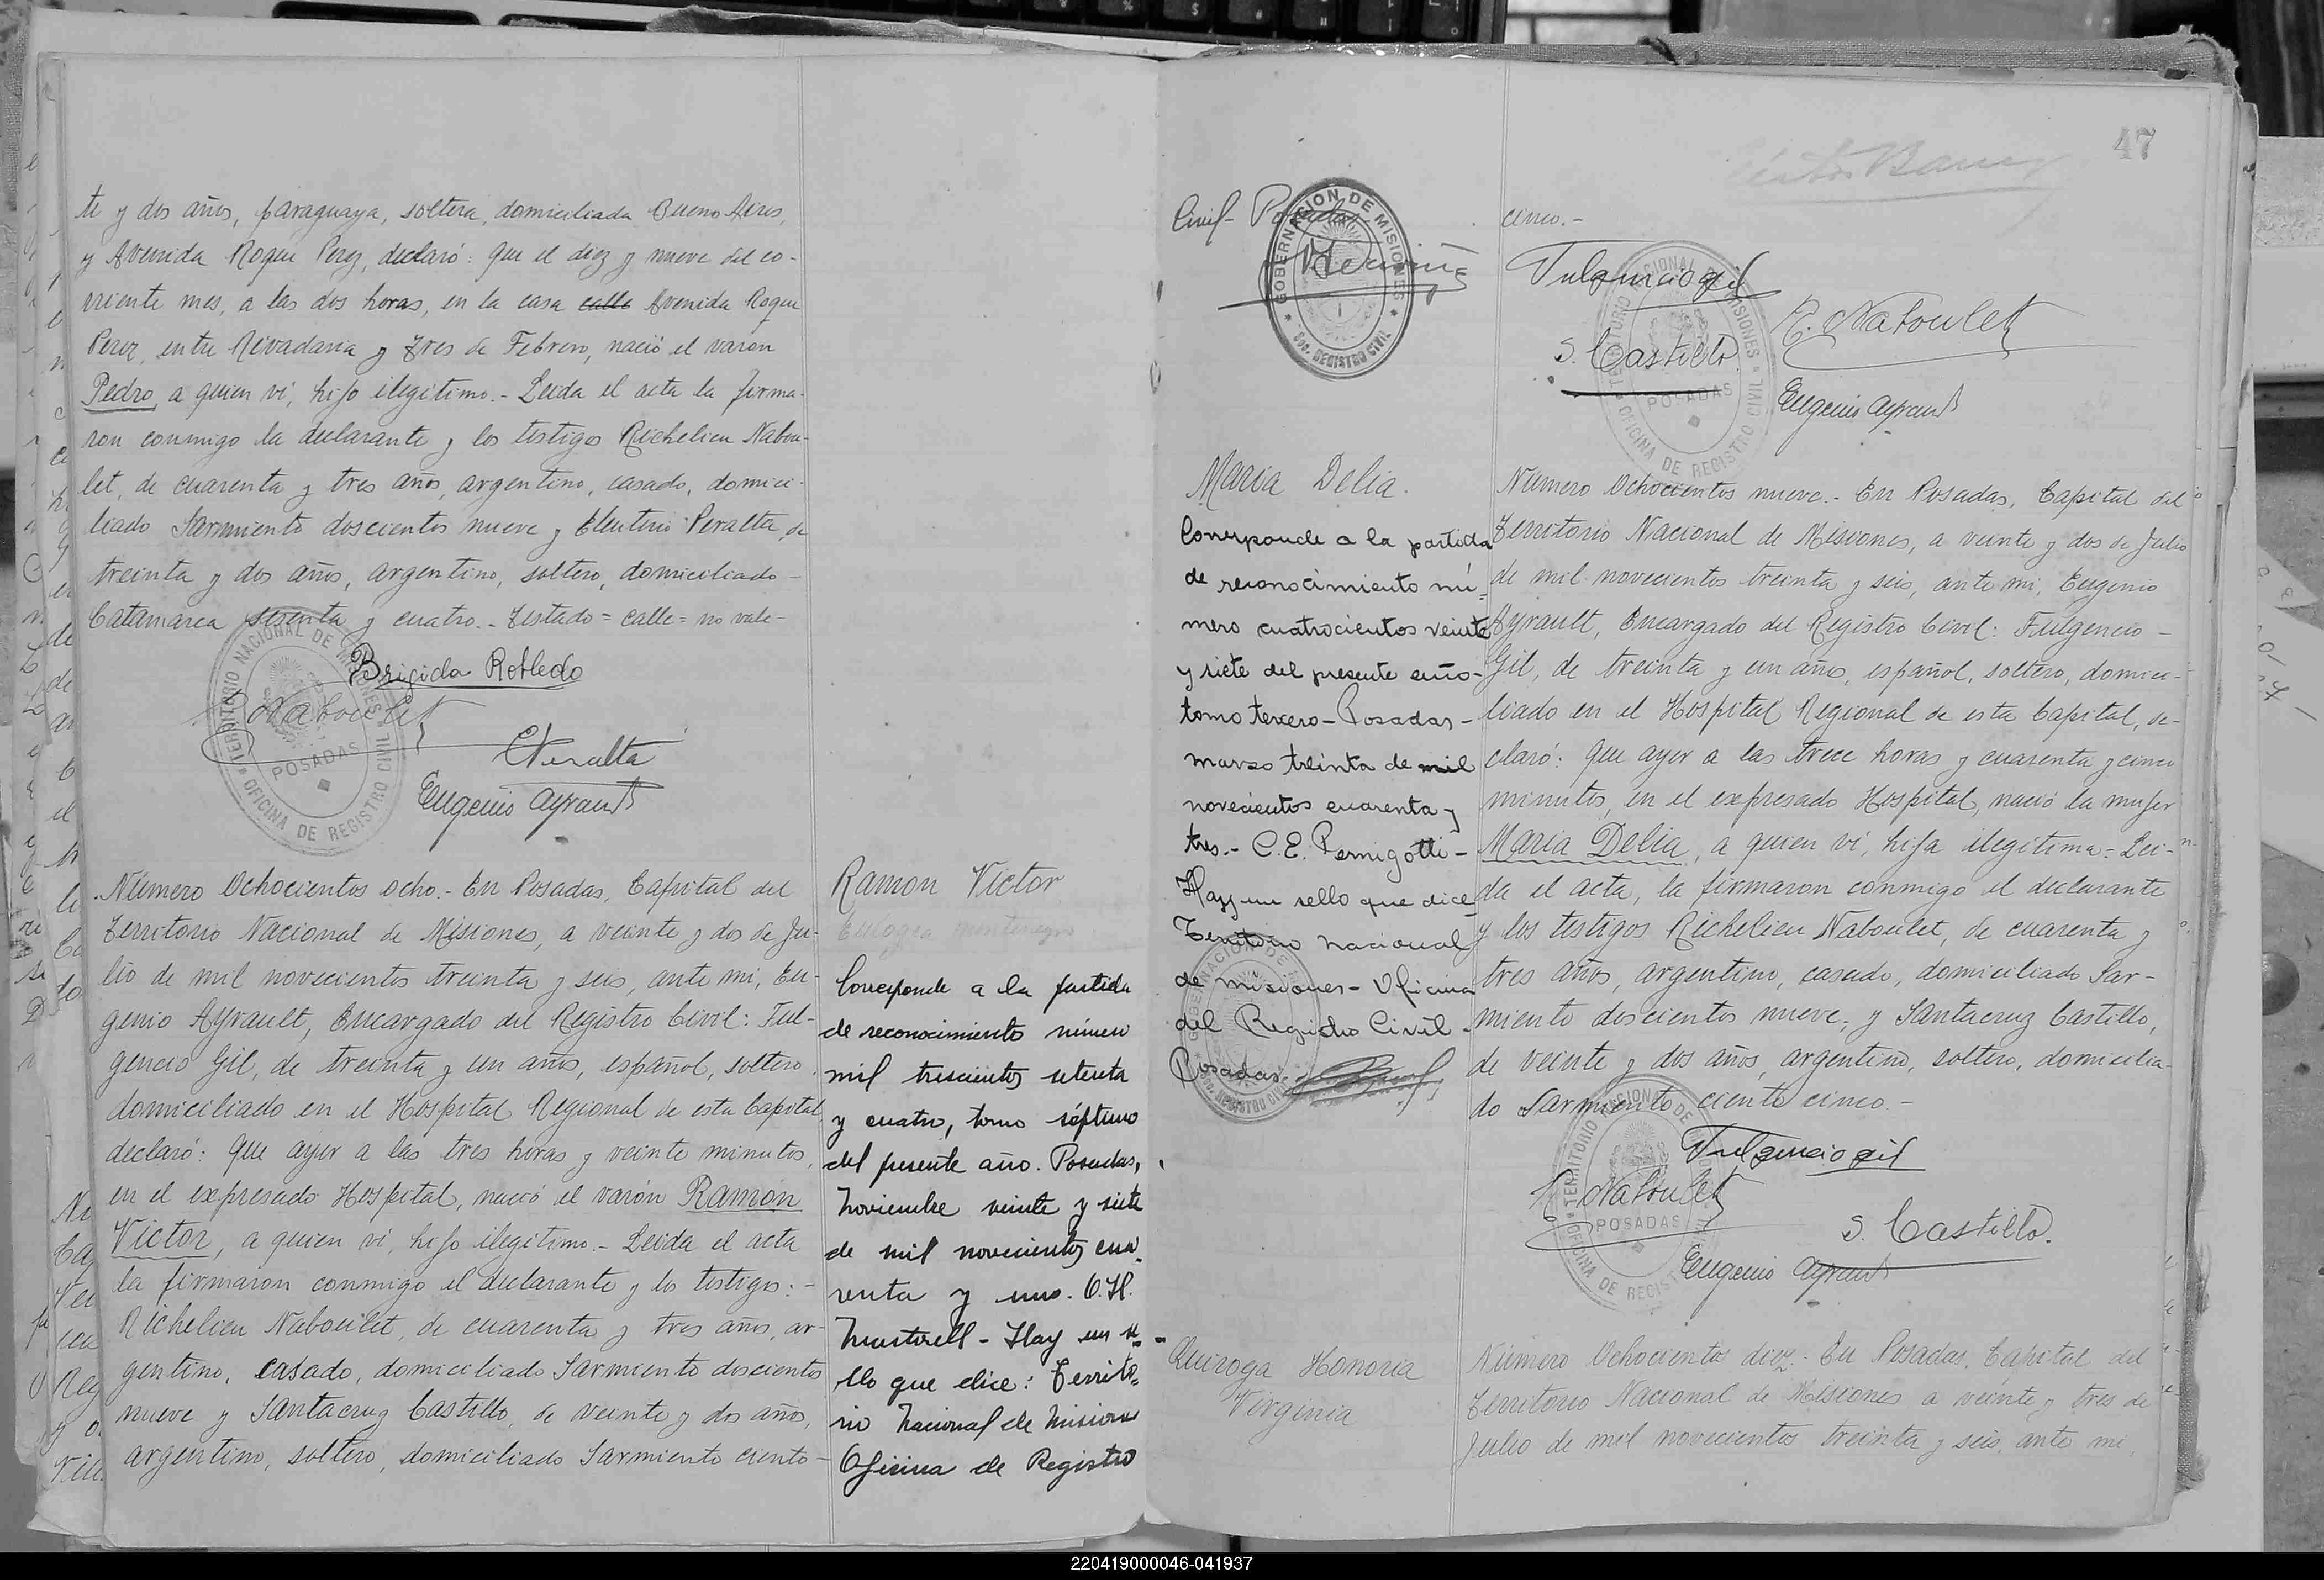 te y dos años, paraguaya, soltera, domiciliada Bueno Aires,
y Avenida Roque Perez, declaró: que el diez y nueve del co-
rriente mes, a las dos horas, en la casa calle Avenida Roque
Perez, entre Rivadavia y Tres de Febrero, nació el varon
Pedro, a quien vi, hijo ilegitimo.- Leida el acta la firma-
ron conmigo la declarante y los testigos Richelieu Nabou-
let, de cuarenta y tres años, argentino, casado, domici-
liado Sarmiento doscientos nueve y Eleuterio Peralta, de
treinta y dos años, argentino, soltero, domiciliado-
Catamarca sesenta y cuatro.- Testado = calle = no vale-
Brigida Robledo
R. Naboulet
E Peralta
Eugenio Ayrault
TERRITORIO NACIONAL DE MISIONES
POSADAS
OFICINA DE REGISTRO CIVIL
Número Ochocientos ocho.- En Posadas, Capital del
Territorio Nacional de Misiones, a veinte y dos de Ju-
lio de mil novecientos treinta y seis, ante mi, Eu-
genio Ayrault, Encargado del Registro Civil: Ful-
gencio Gil, de treinta y un años, español, soltero,
domiciliado en el Hospital Regional de esta Capital,
declaró: que ayer a las tres horas y veinte minutos,
en el expresado Hospital, nació el varón Ramón
Victor, a quien vi, hijo ilegitimo.- Leida el acta
la firmaron conmigo el declarante y los testigos:-
Richelieu Naboulet, de cuarenta y tres años, ar-
gentino, casado, domiciliado Sarmiento doscientos
nueve y Santacruz Castillo, de veinte y dos años,
argentino, soltero, domiciliado Sarmiento ciento-
Ramon Victor
Eulogia Montenegro
Corresponde a la partida
de reconocimiento número
mil trescientos setenta
y cuatro, tomo séptimo
del presente año. Posadas,
Noviembre veinte y siete
de mil novecientos cua-
renta y uno. O.H.
Hay un se-
llo que dice: Territo-
rio Nacional de Misiones
Oficina de Registro
47
Civil- Posadas
GOBERNACION DE MISIONES
SOC. REGISTRO CIVIL
cinco.-
Fulgencio Gil
R. Naboulet
S. Castillo
Eugenio Ayrault
TERRITORIO NACIONAL DE MISIONES
POSADAS
OFICINA DE REGISTRO CIVIL
Maria Delia.
Corresponde a la partida
de reconocimiento nú-
mero cuatrocientos veinte
y siete del presente año-
tomo tercero- Posadas-
marzo treinta de mil
novecientos cuarenta y
tres.- C.E. Pernigotti-
Hay un sello que dice
Territorio nacional
de misiones- Oficina
del Registro Civil-
Posadas.-
Número Ochocientos nueve.- En Posadas, Capital del
Territorio Nacional de Misiones, a veinte y dos de Julio
de mil novecientos treinta y seis, ante mi, Eugenio
Ayrault, Encargado del Registro Civil: Fulgencio-
Gil, de treinta y un años, español, soltero, domici-
liado en el Hospital Regional de esta Capital, de-
claró: que ayer a las trece horas y cuarenta y cinco
minutos, en el expresado Hospital, nació la mujer
Maria Delia, a quien vi, hija ilegitima.- Lei-
da el acta, la firmaron conmigo el declarante
y los testigos Richelieu Naboulet, de cuarenta y
tres años, argentino, casado, domiciliado Sar-
miento doscientos nueve, y Santacruz Castillo,
de veinte y dos años, argentino, soltero, domicilia-
do Sarmiento ciento cinco.-
Fulgencio Gil
R. Naboulet
S. Castillo.
Eugenio Ayrault
TERRITORIO NACIONAL DE MISIONES
POSADAS
OFICINA DE REGISTRO CIVIL
Quiroga Honoria
Virginia
Número Ochocientos diez.- En Posadas, Capital del
Territorio Nacional de Misiones a veinte y tres de
Julio de mil novecientos treinta y seis, ante mi,
220419000046-041937